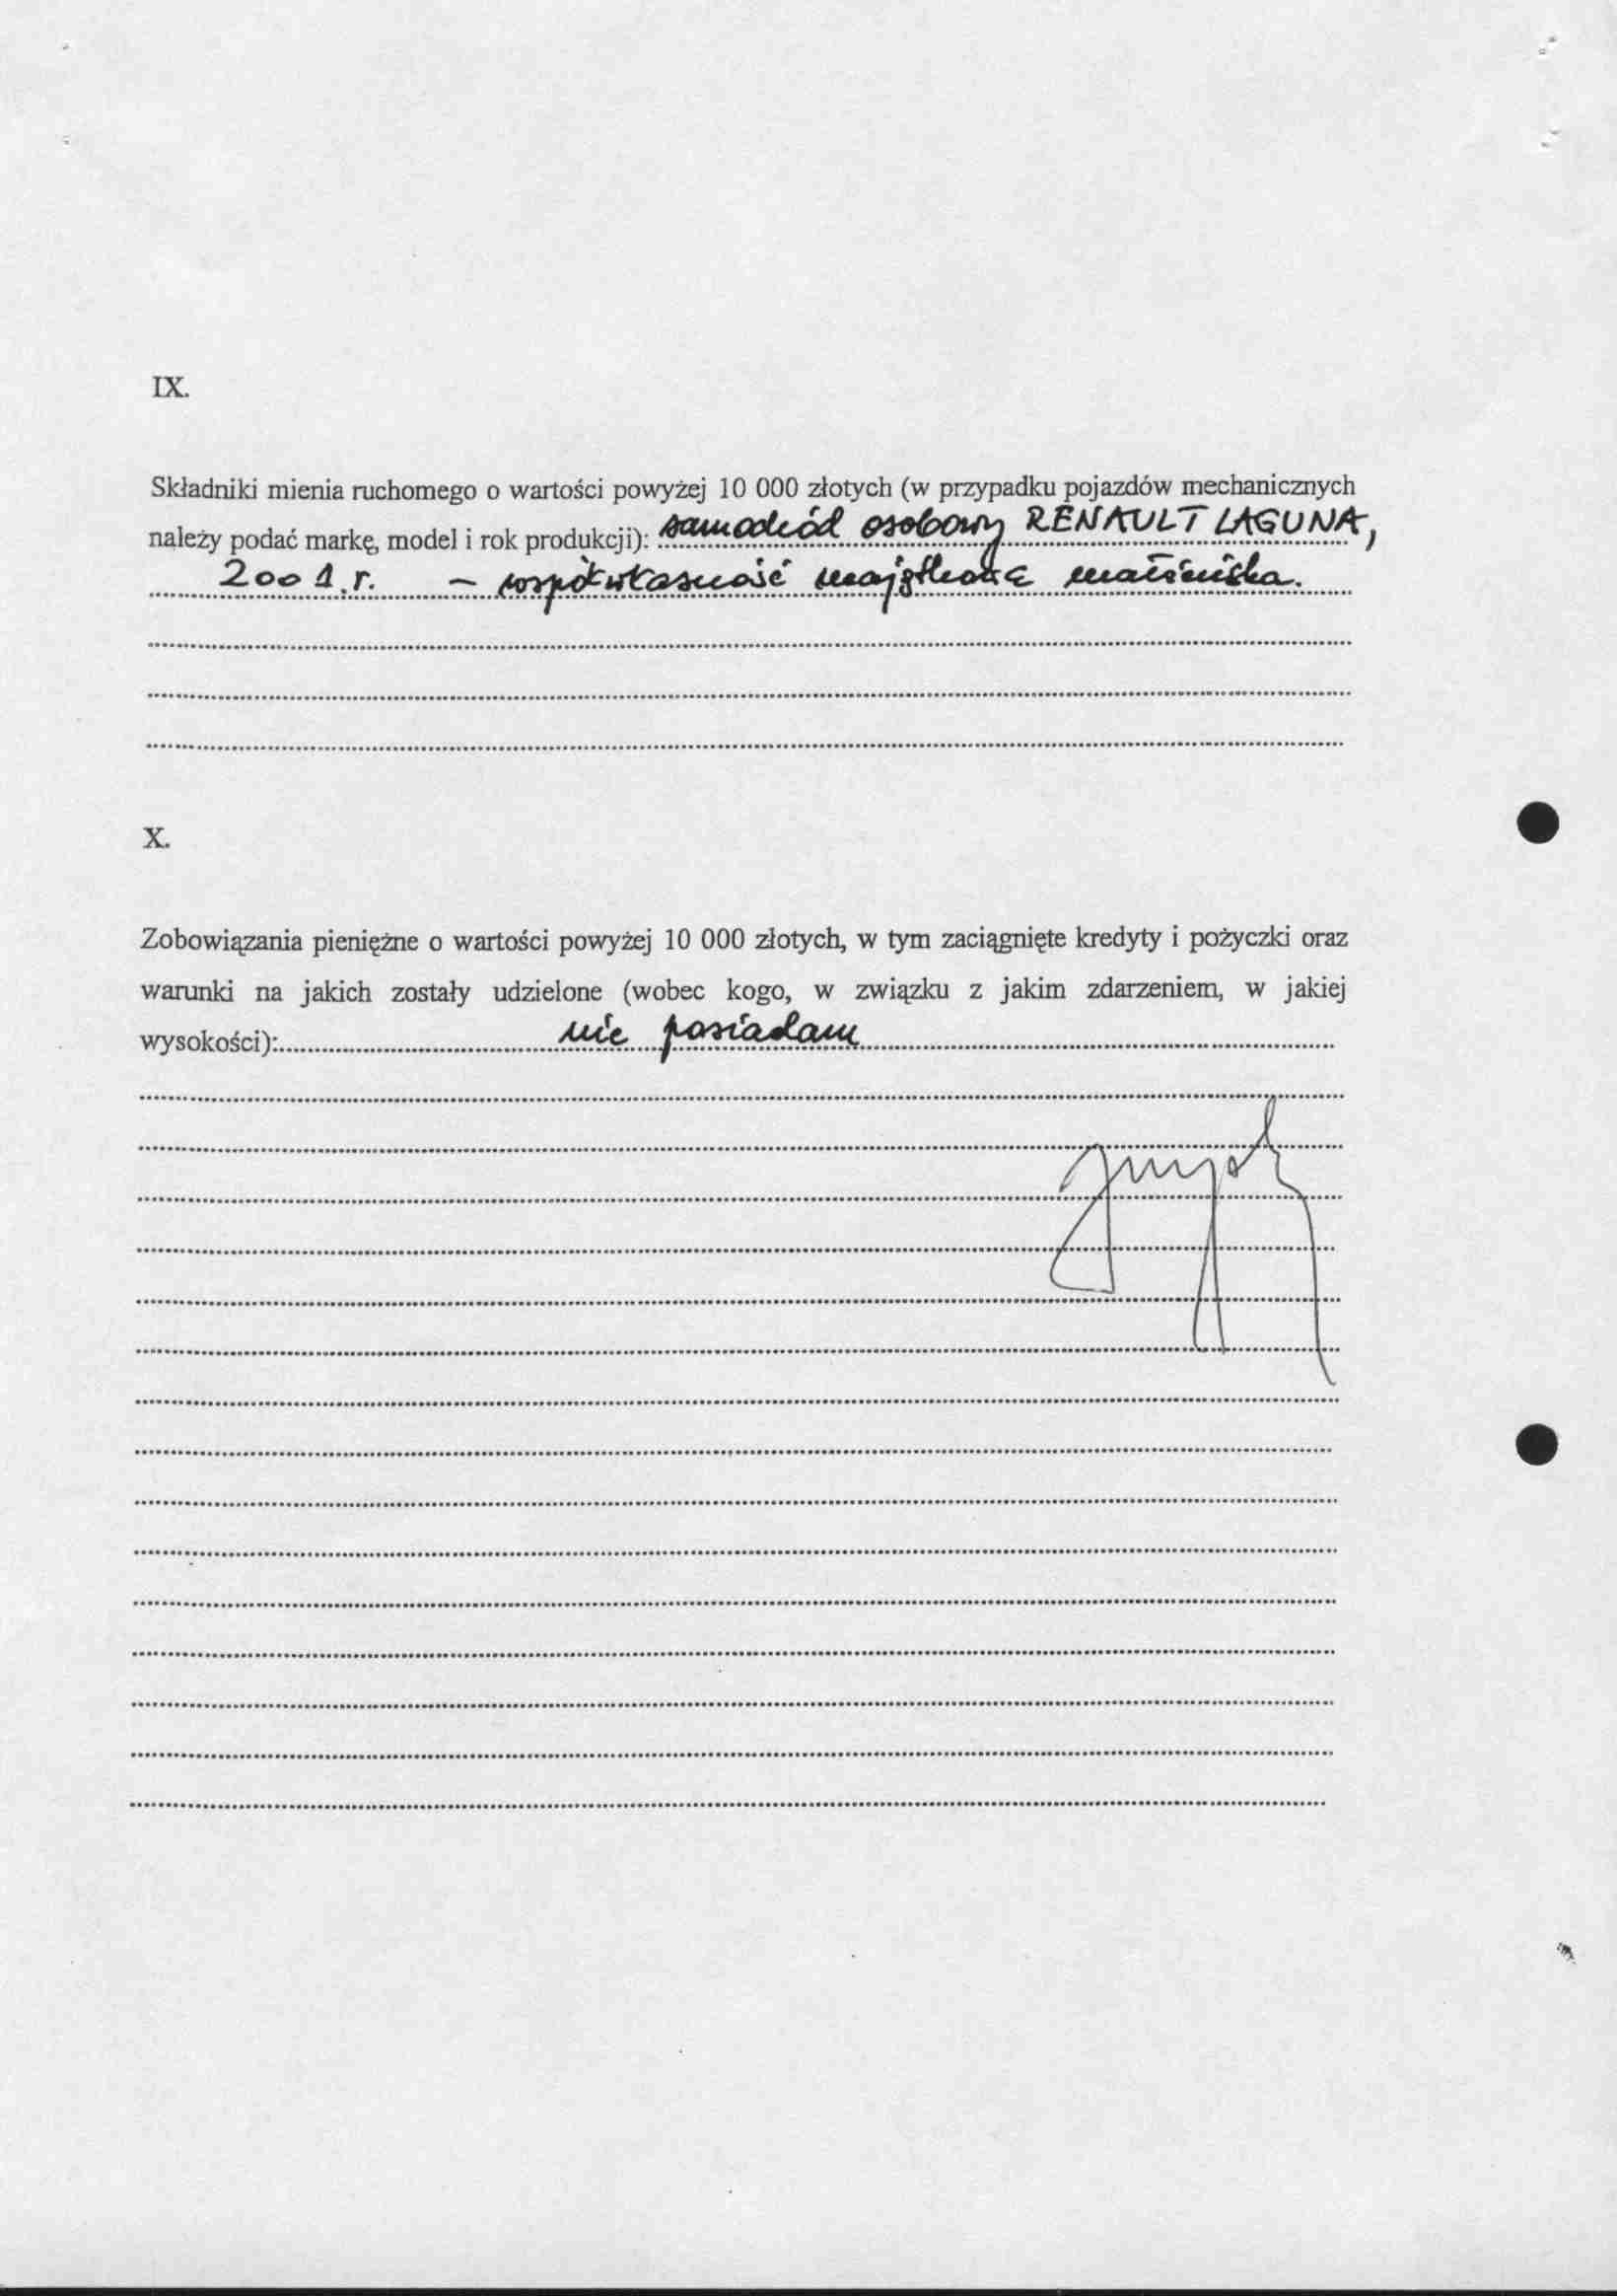 IX.
Składniki mienia ruchomego o wartości powyżej 10 000 złotych (w przypadku pojazdów mechanicznych
należy podać markę, model i rok produkcji): samochód osobowy RENAULT LAGUNA,
2001.r. – współwłasność majątkowa małżeńska.
X.
Zobowiązania pieniężne o wartości powyżej 10 000 złotych, w tym zaciągnięte kredyty i pożyczki oraz
warunki na jakich zostały udzielone (wobec kogo, w związku z jakim zdarzeniem, w jakiej
wysokości): nie posiadam